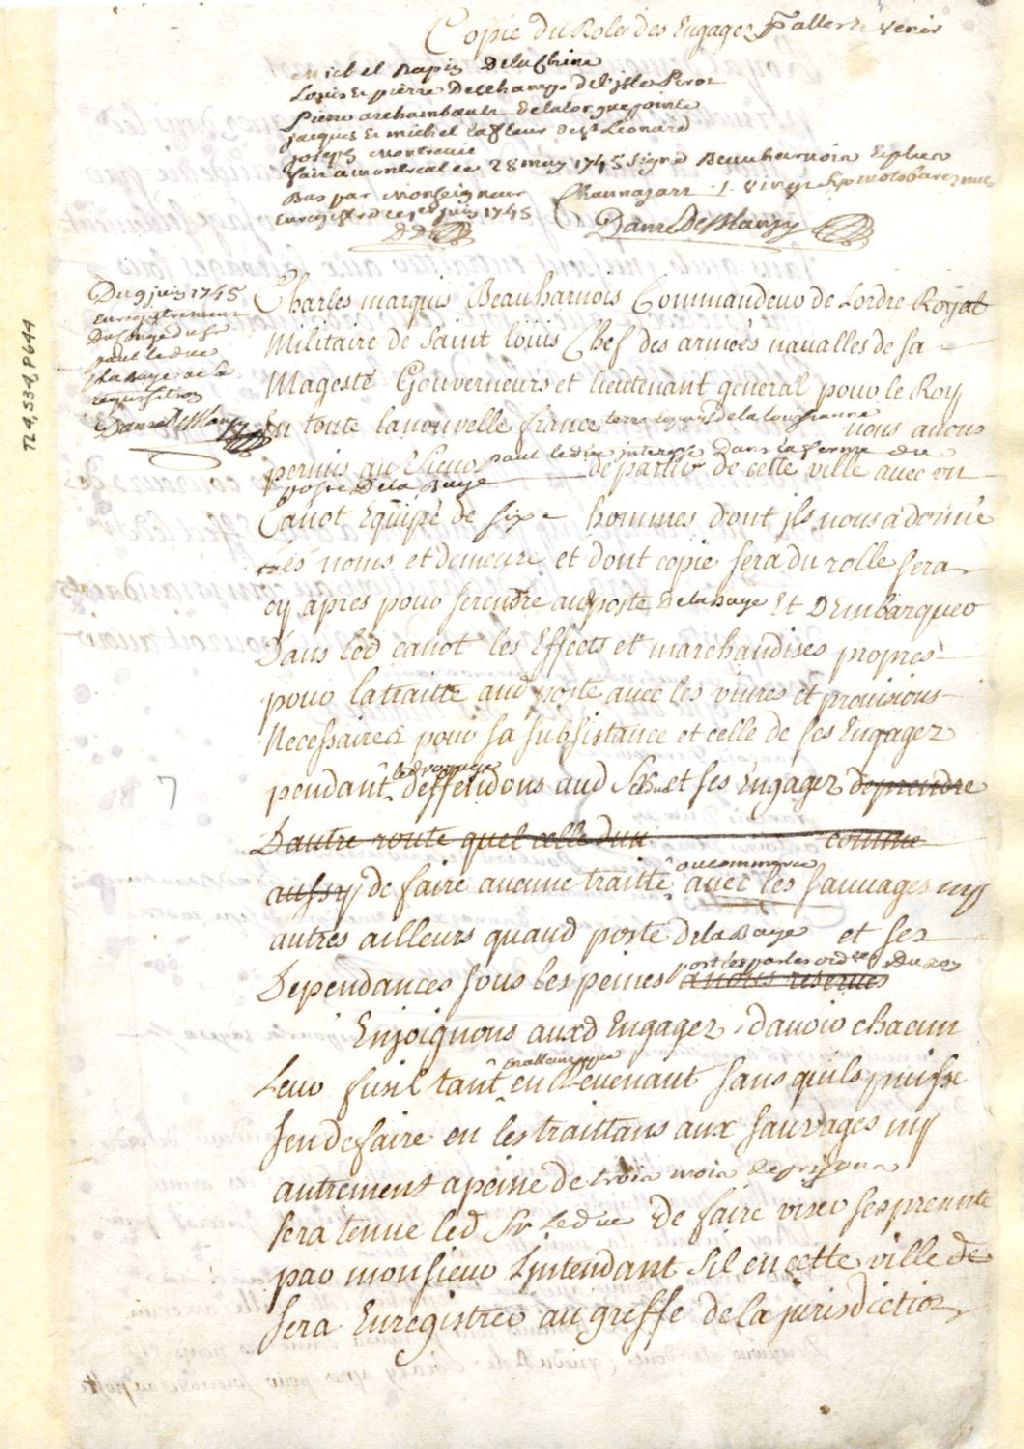 Copie du Role des Engagez P aller & venir
michel Rapin De la Chine
Louis Et pierre Deschamps de l'isle Perot
Pierre archambault de la longue pointe
jacques Et michel Lafleur de St Leonard
joseph Montreuil
fait a montreal ce 28 may 1745 signé Beauharnois Et plus
Bas par Monseigneur
Enregistré ce 9e juin 1745
DD
Danré DeBlanzy
Du 9 juin 1745
Enregistrement
Du Congé du Sr
paul Leduc
P La Baye a sa
requisition
Danré DeBlanzy
T24, S34, P644
7
Charles marquis Beauharnois Commandeur de Lordre Royal
Militaire de Saint loüis Chef des armées navalles de sa
Magesté Gouverneurs et lieutenant general pour le Roy
En toute la nouvelle france terre et pays de la louisianne nous avons
permis au Sieur paul leduc interessé Dans la ferme du
poste De la Baye de partir de cette ville avec un
Canot Equipé de six hommes dont ils nous a donné
les noms et demeure et dont copie sera du rolle sera
cy apres pour se rendre aud poste De la Baye Et D'Embarquer
Dans led canot les Effects et marchandises propres
pour la traitte aud poste avec les vivres et provisions
Necessaires pour sa subsistance et celle de ses Engagez
pendant led voyage deffendons aud S. Leduc et ses Engagez de prendre
Dautre route quel celle dun comme
aussy de faire aucune traitte ou commerce avec les sauvages ny
autres ailleurs quaud poste De la Baye et ses
Dependances sous les peines portées par les ordres Du Roy a nous reservés
Enjoignons auxd Engagez davoir chacun
Leur fusil tant en allant que en Revenant sans quils puisse
sen defaire en les traittans aux sauvages ny
autrement a peine de trois mois de prison
sera tenue led Sr Leduc de faire viser ses presente
par monsieur Lintendant sil en cette ville de
sera Enregistrer au greffe de la jurisdiction